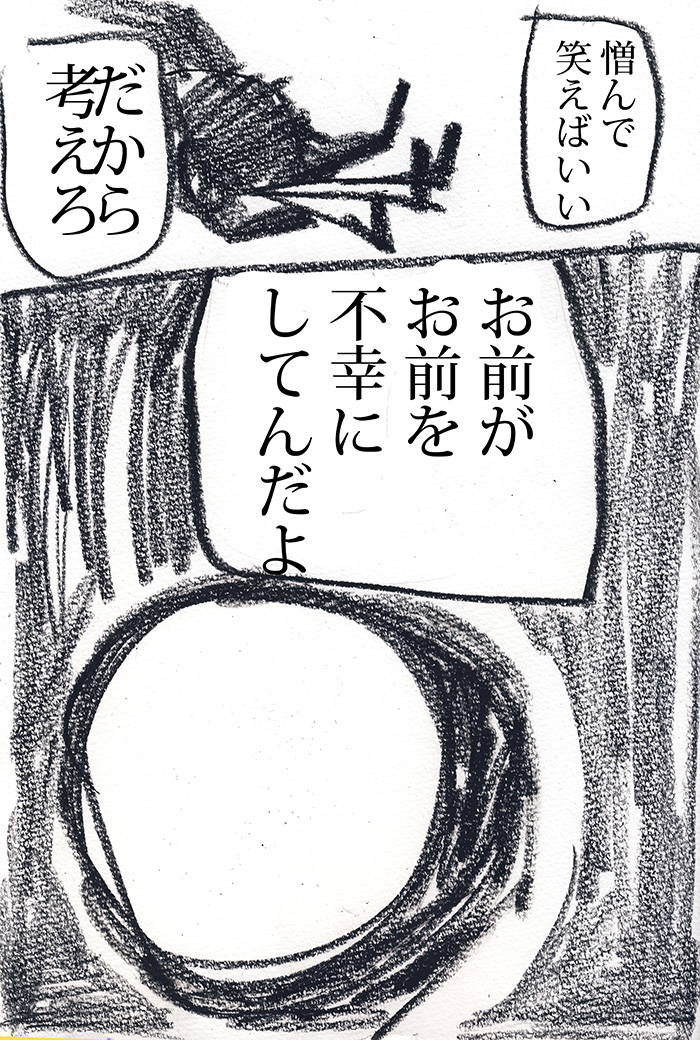 憎んで
笑えばいい
だから
考えろ
お前が
お前を
不幸に
してんだよ